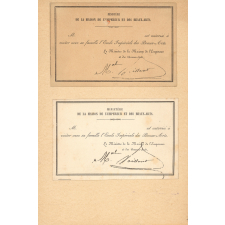 MINISTÈRE
DE LA MAISON DE L'EMPEREUR ET DES BEAUX-ARTS
M. est autorisé à
visiter avec sa famille l'École Impériale des Beaux-Arts.
Le Ministre de la Maison de l'Empereur
et des Beaux-Arts,
MINISTÈRE
DE LA MAISON DE L'EMPEREUR ET DES BEAUX-ARTS
M. est autorisé à
visiter avec sa famille l'École Impériale des Beaux-Arts.
Le Ministre de la Maison de l'Empereur
et des Beaux-Arts,